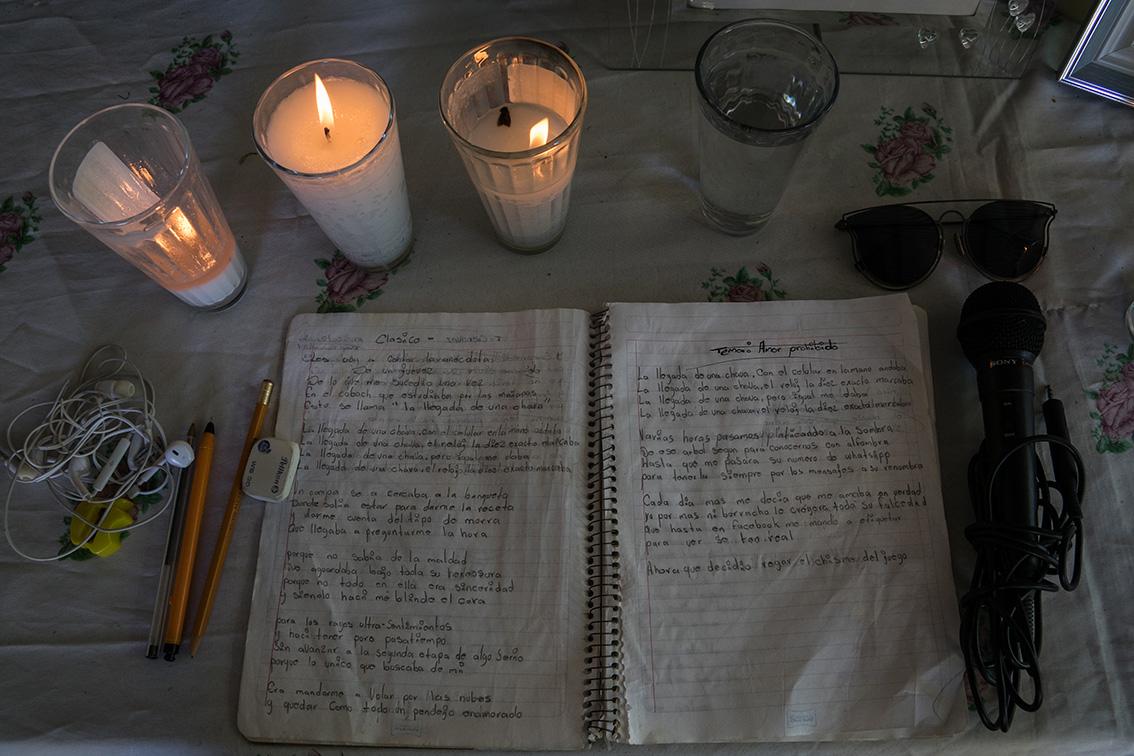 Clasico -
Les voy a contar la anecdota
De un jueves
De lo que me sucedio una vez
En el cobach que estudiaba por las mañanas
Esto se llama "la llegada de una chava"
La llegada de una chava, con el celular en la mano andaba
La llegada de una chava, el reloj la diez exacta marcaba
La llegada de una chava, pero igual me daba
La llegada de una chava, el reloj la diez exacta marcaba
se a cercaba a la banqueta
Donde solia estar para darme la receta
y darme cuenta del tipo de morra
Que llegaba a preguntarme la hora
porque no sabia de la maldad
Que aguardaba bajo toda su hermosura
porque no todo en ella era sinceridad
y sienolo haci me blinde el cora
para los rayos ultra-sentimientos
y haci tener puro pasatiempo
Sin avanzar a la segunda etapa de algo serio
porque lo unico que buscaba de mi
Era mandarme a volar por las nubes
y quedar como todo un pendejo enamorado
Tema: Amor prohibido
La llegada de una chava, Con el celular en la mano andaba
La llegada de una chava, el reloj la diez exacta marcaba
La llegada de una chava, pero igual me daba
La llegada de una chava, el reloj la diez exacta marcaba
Varias horas pasamos platicando a la sombra
De ese arbol segun para conocernos con alfombra
Hasta que me pasara su numero de whatsapp
para tenerla siempre por los mensajes a su renombra
Cada dia mas me decia que me amaba en verdad
yo por mas ni borracho le creeria toda su falsedad
Que hasta en facebook me mando a etiquetar
para ver se tan real
Ahora que decidio rogar el chisme del juego
SONY
Pelikan